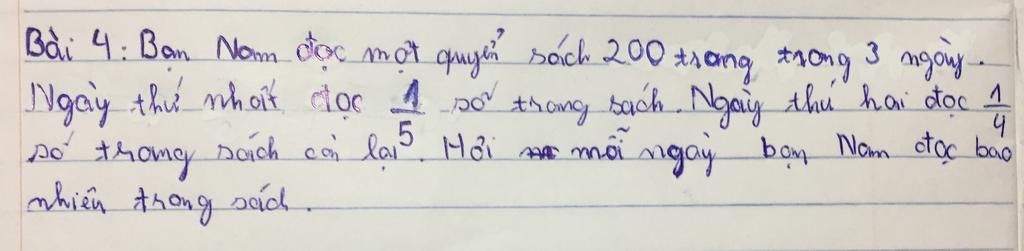 Bài 4: Bạn Nam đọc một quyển sách 200 trang trong 3 ngày.
Ngày thứ nhất đọc 1/5 số trang sách. Ngày thứ hai đọc 1/4
số trang sách còn lại. Hỏi mỗi ngày bạn Nam đọc bao
nhiên trang sách.